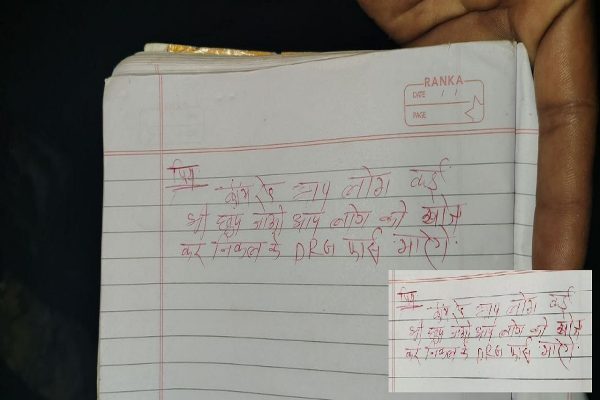 RANKA
DATE / /
PAGE
प्रिय
लोग कई
भी छुप जाओ आप लोग को खोज
कर निकल के DRG मारेगे.
प्रिय
लोग कई
भी छुप जाओ आप लोग को खोज
कर निकल के DRG मारेगे.